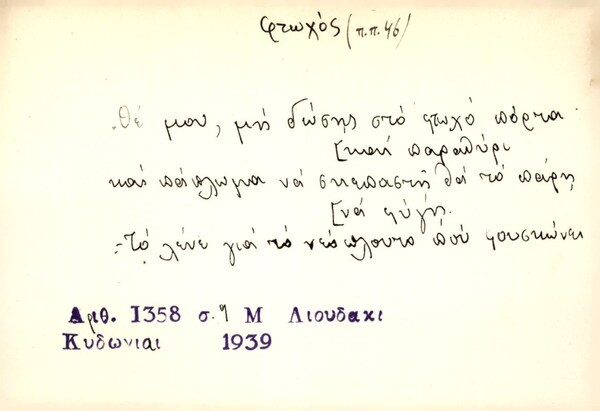 φτωχός (π.π. 46)
Θέ μου, μή δώσης στό φτωχό πόρτα
[καί παραθύρι
καί πάπλωμα νά σκεπαστῆ θά τό πάρη
[νά φύγη.
-Τό λένε γιά τό νεόπλουτο πού φουσκώνει
Αριθ. 1358 σ. 9 Μ Λιουδακι
Κυδωνιαι 1939